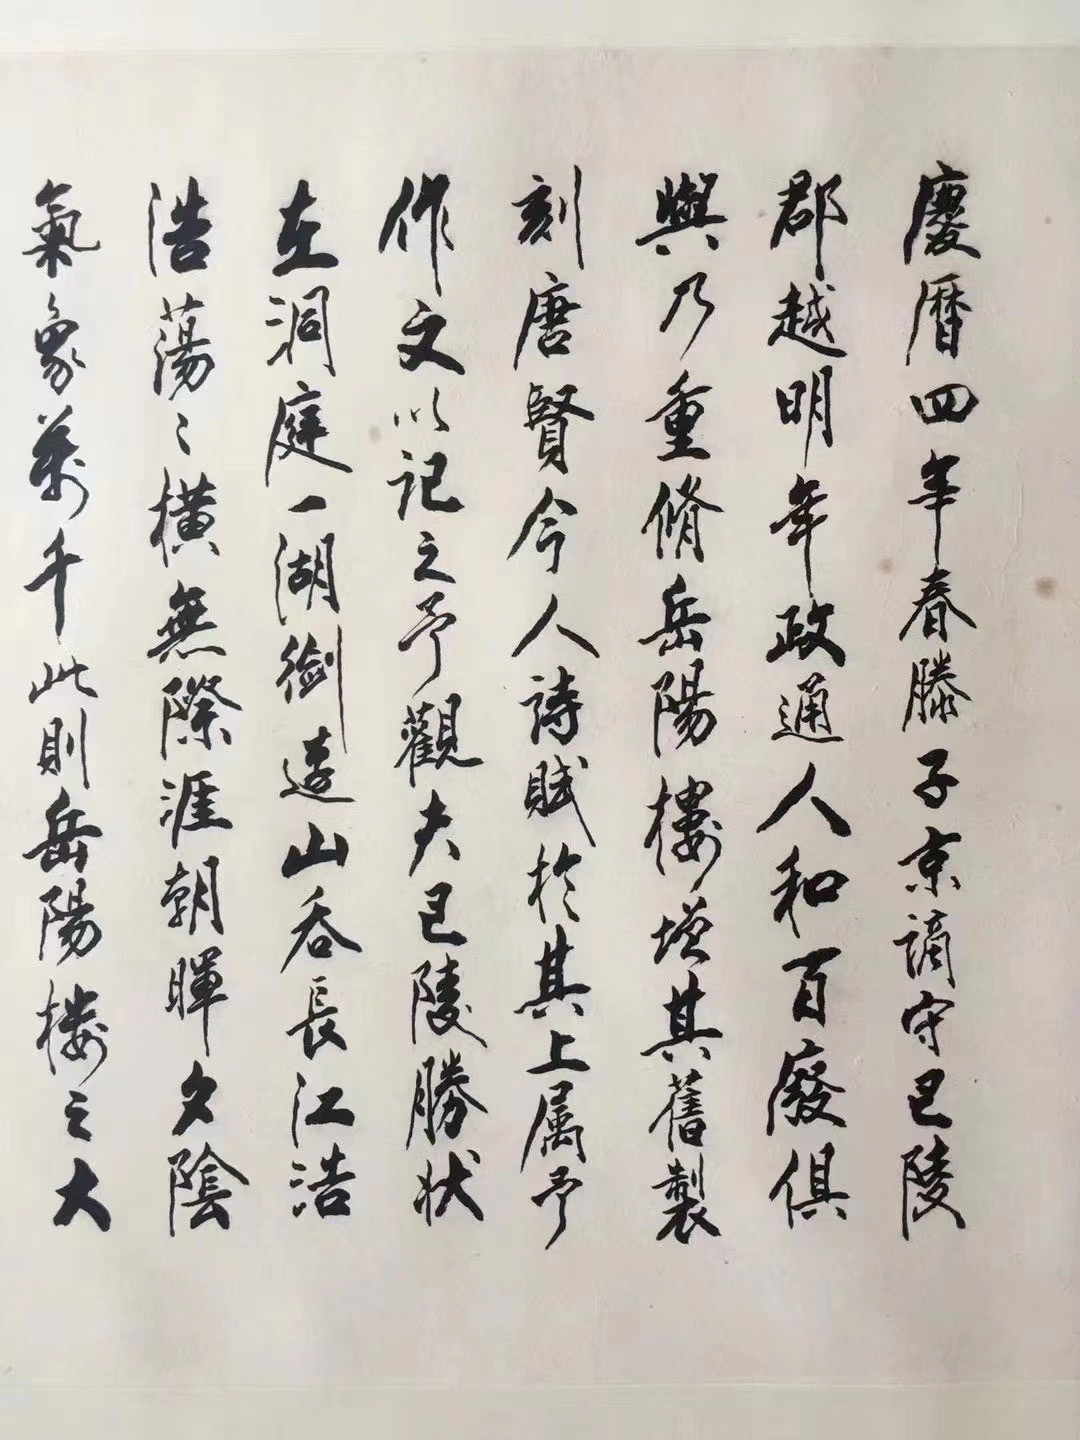 慶曆四年春滕子京謫守巴陵
郡越明年政通人和百廢俱
興乃重脩岳陽樓增其舊製
刻唐賢今人詩賦於其上属予
作文以記之予觀夫巴陵勝狀
在洞庭一湖銜遠山吞長江浩
浩蕩〻橫無際涯朝暉夕陰
氣象萬千此則岳陽樓之大